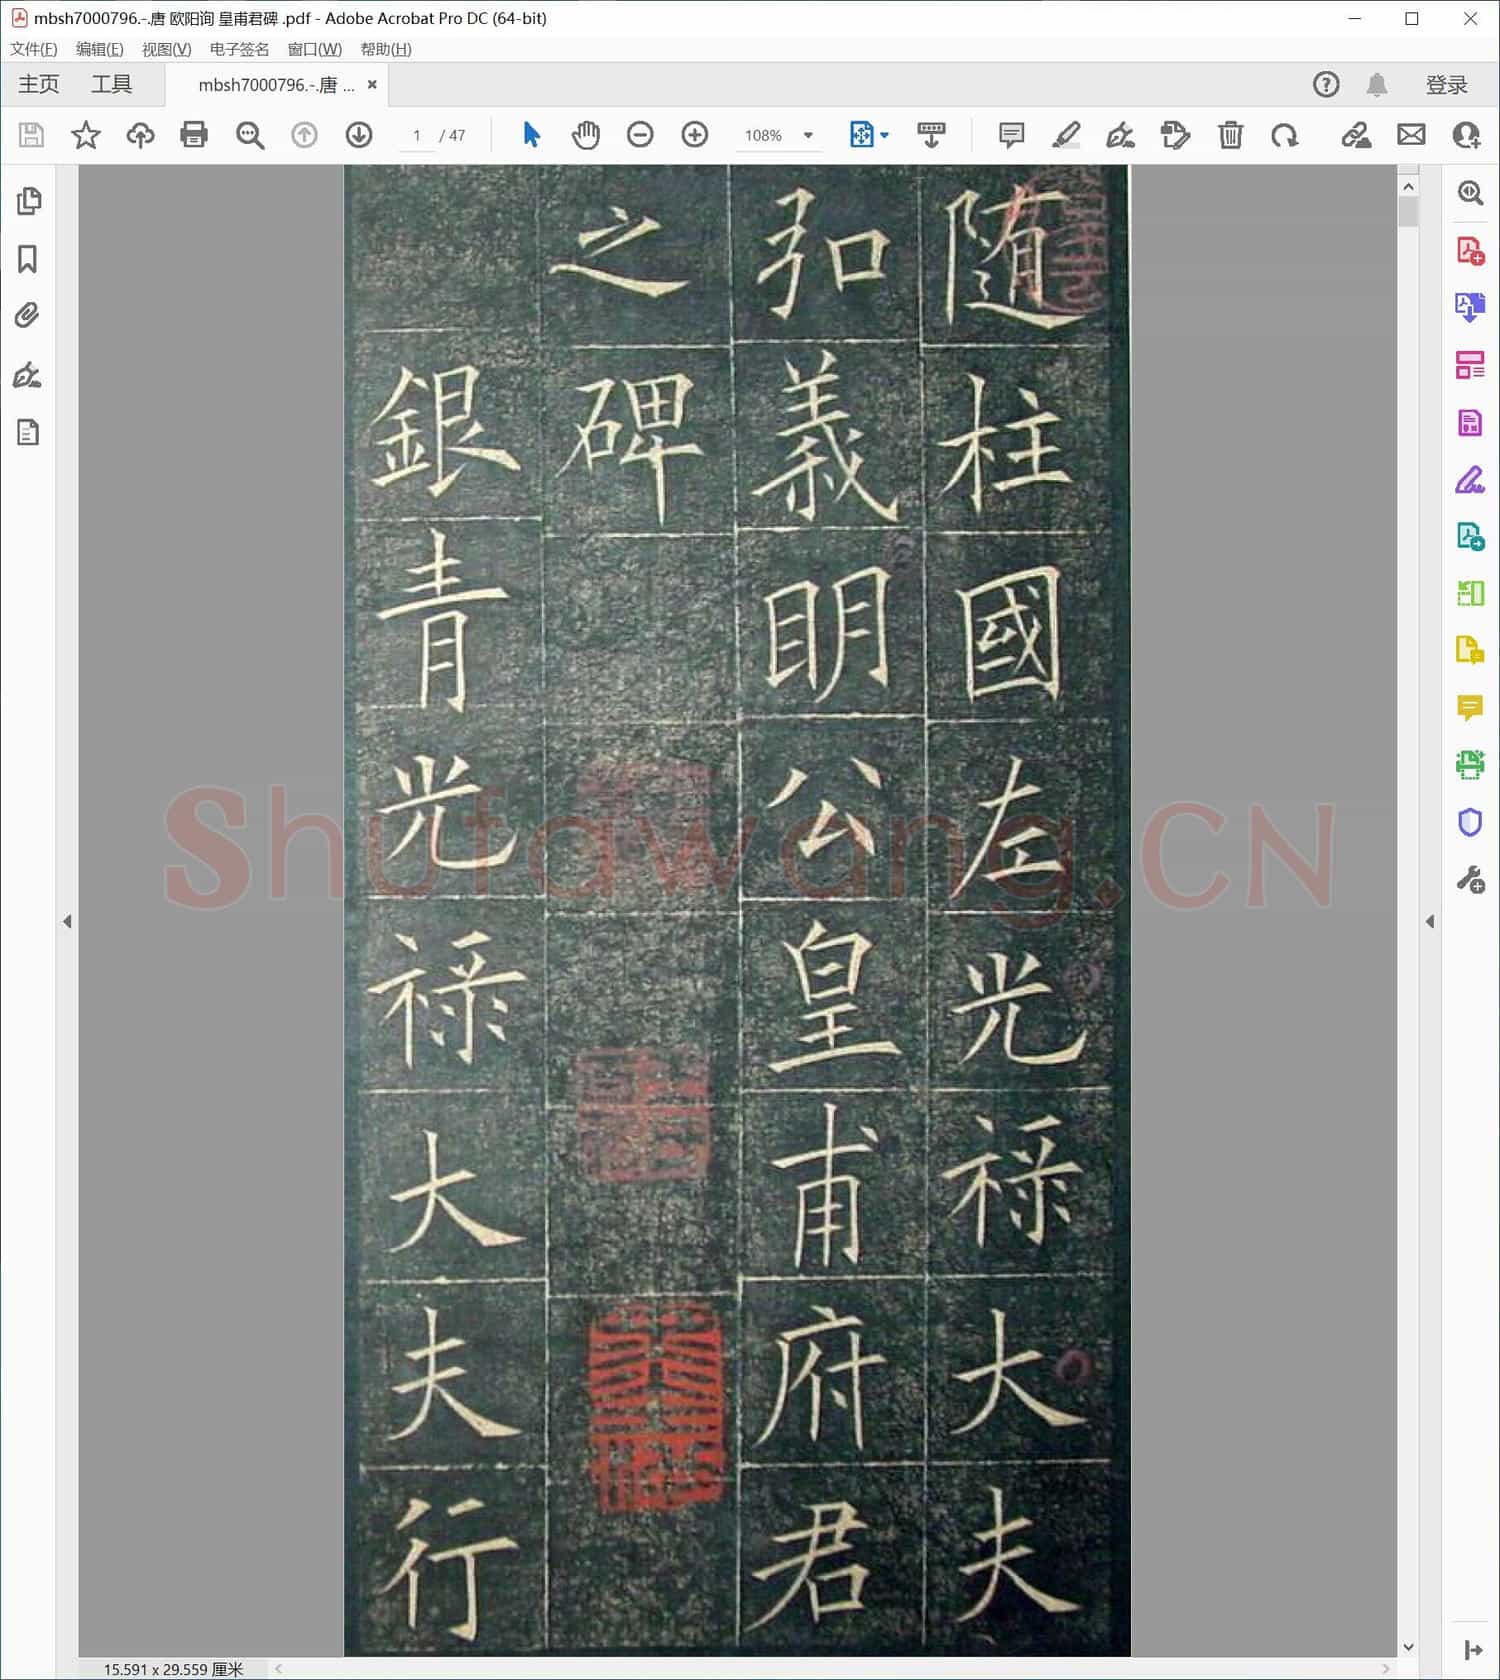 mbsh7000796.-.唐 欧阳询 皇甫君碑 .pdf - Adobe Acrobat Pro DC (64-bit)
文件(F) 编辑(E) 视图(V) 电子签名 窗口(W) 帮助(H)
主页 工具 mbsh7000796.-.唐 ... 登录
1 / 47 108%
随柱國左光祿大夫
弘義明公皇甫府君
之碑
銀青光祿大夫行
Shufawang.CN
15.591 x 29.559 厘米